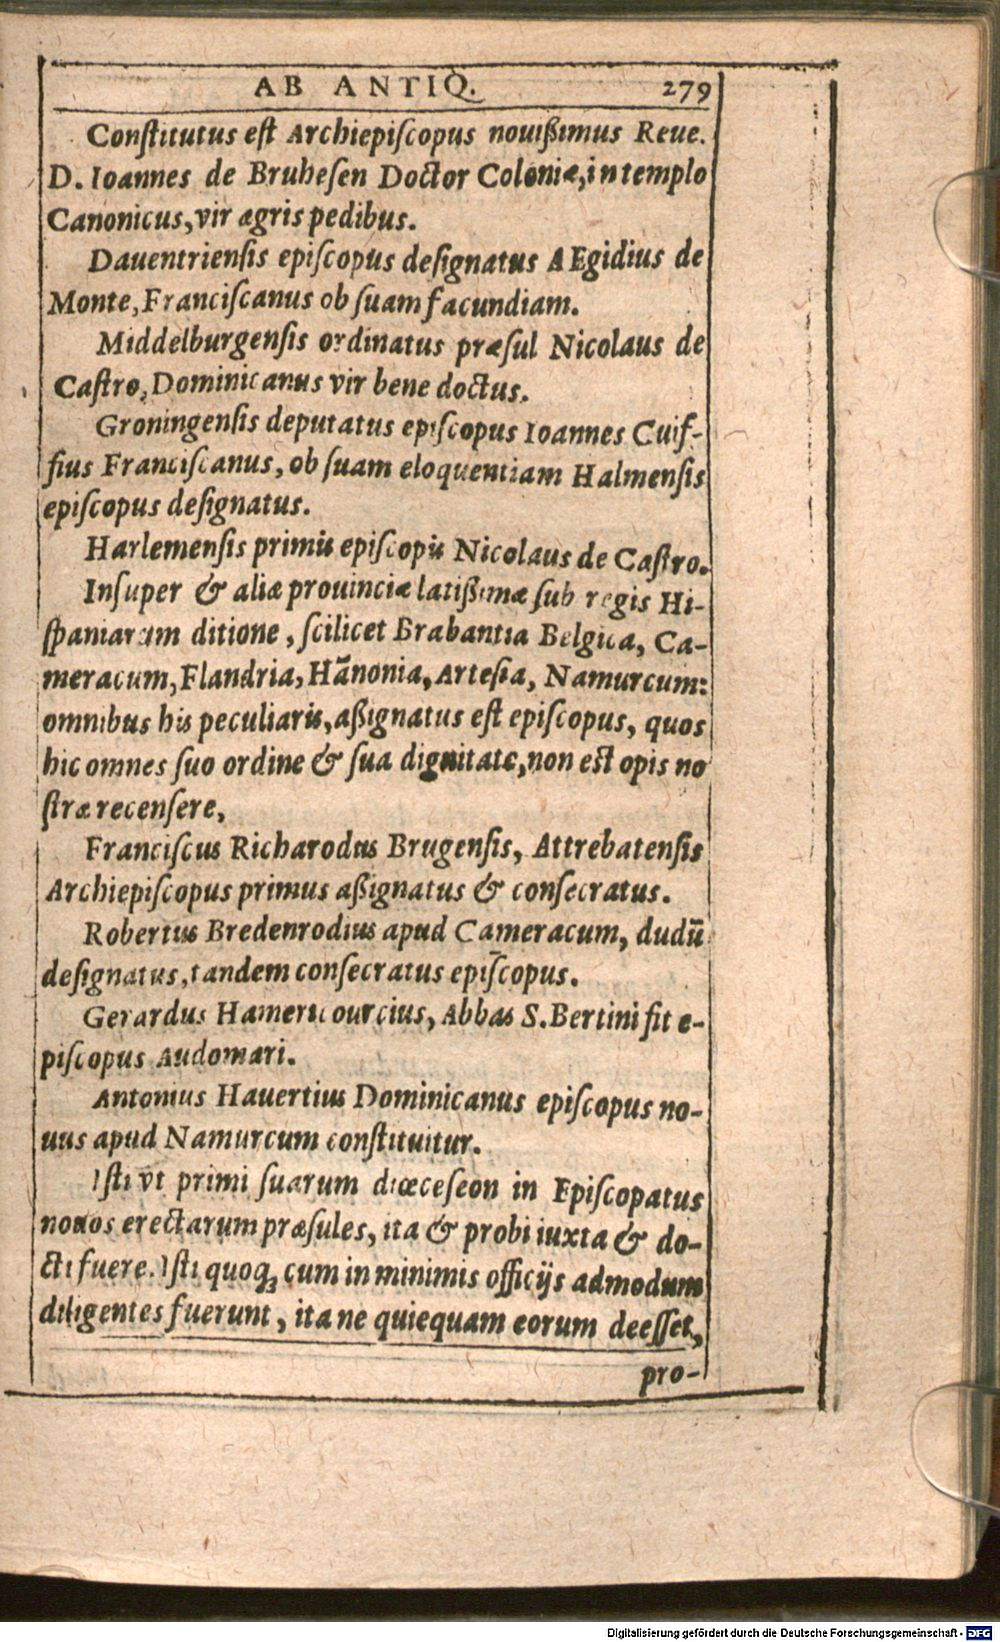 AB ANTIQ. 279
Conſtitutus eſt Archiepiſcopus nouißimus Reue.
D. Ioannes de Bruheſen Doctor Coloniæ, in templo
Canonicus, vir ægris pedibus.
Dauentrienſis epiſcopus deſignatus AEgidius de
Monte, Franciſcanus ob ſuam facundiam.
Middelburgenſis ordinatus præſul Nicolaus de
Caſtro, Dominicanus vir bene doctus.
Groningenſis deputatus epiſcopus Ioannes Cuif-
fius Franciſcanus, ob ſuam eloquentiam Halmenſis
epiſcopus deſignatus.
Harlemenſis primus epiſcopus Nicolaus de Caſtro.
Inſuper & aliæ prouinciæ latißimæ ſub regis Hi-
ſpaniarum ditione, ſcilicet Brabantia Belgica, Ca-
meracum, Flandria, Hãnonia, Arteſia, Namurcum:
omnibus his peculiaris, aßignatus eſt epiſcopus, quos
hic omnes ſuo ordine & ſua dignitate, non est opis no
ſtræ recenſere,
Franciſcus Richarodus Brugenſis, Attrebatenſis
Archiepiſcopus primus aßignatus & conſecratus.
Robertus Bredenrodius apud Cameracum, dudũ
deſignatus, tandem conſecratus epiſcopus.
Gerardus Hamericourcius, Abbas S. Bertini fit e-
piſcopus Audomari.
Antonius Hauertius Dominicanus epiſcopus no-
uus apud Namurcum conſtituitur.
Iſti vt primi ſuarum diœceſeon in Epiſcopatus
nouos erectarum præſules, ita & probi iuxta & do-
cti fuere. Iſti quoq; cum in minimis officijs admodum
diligentes fuerunt, ita ne quiequam eorum deeſſet,
pro-
Digitalisierung gefördert durch die Deutsche Forschungsgemeinschaft - DFG